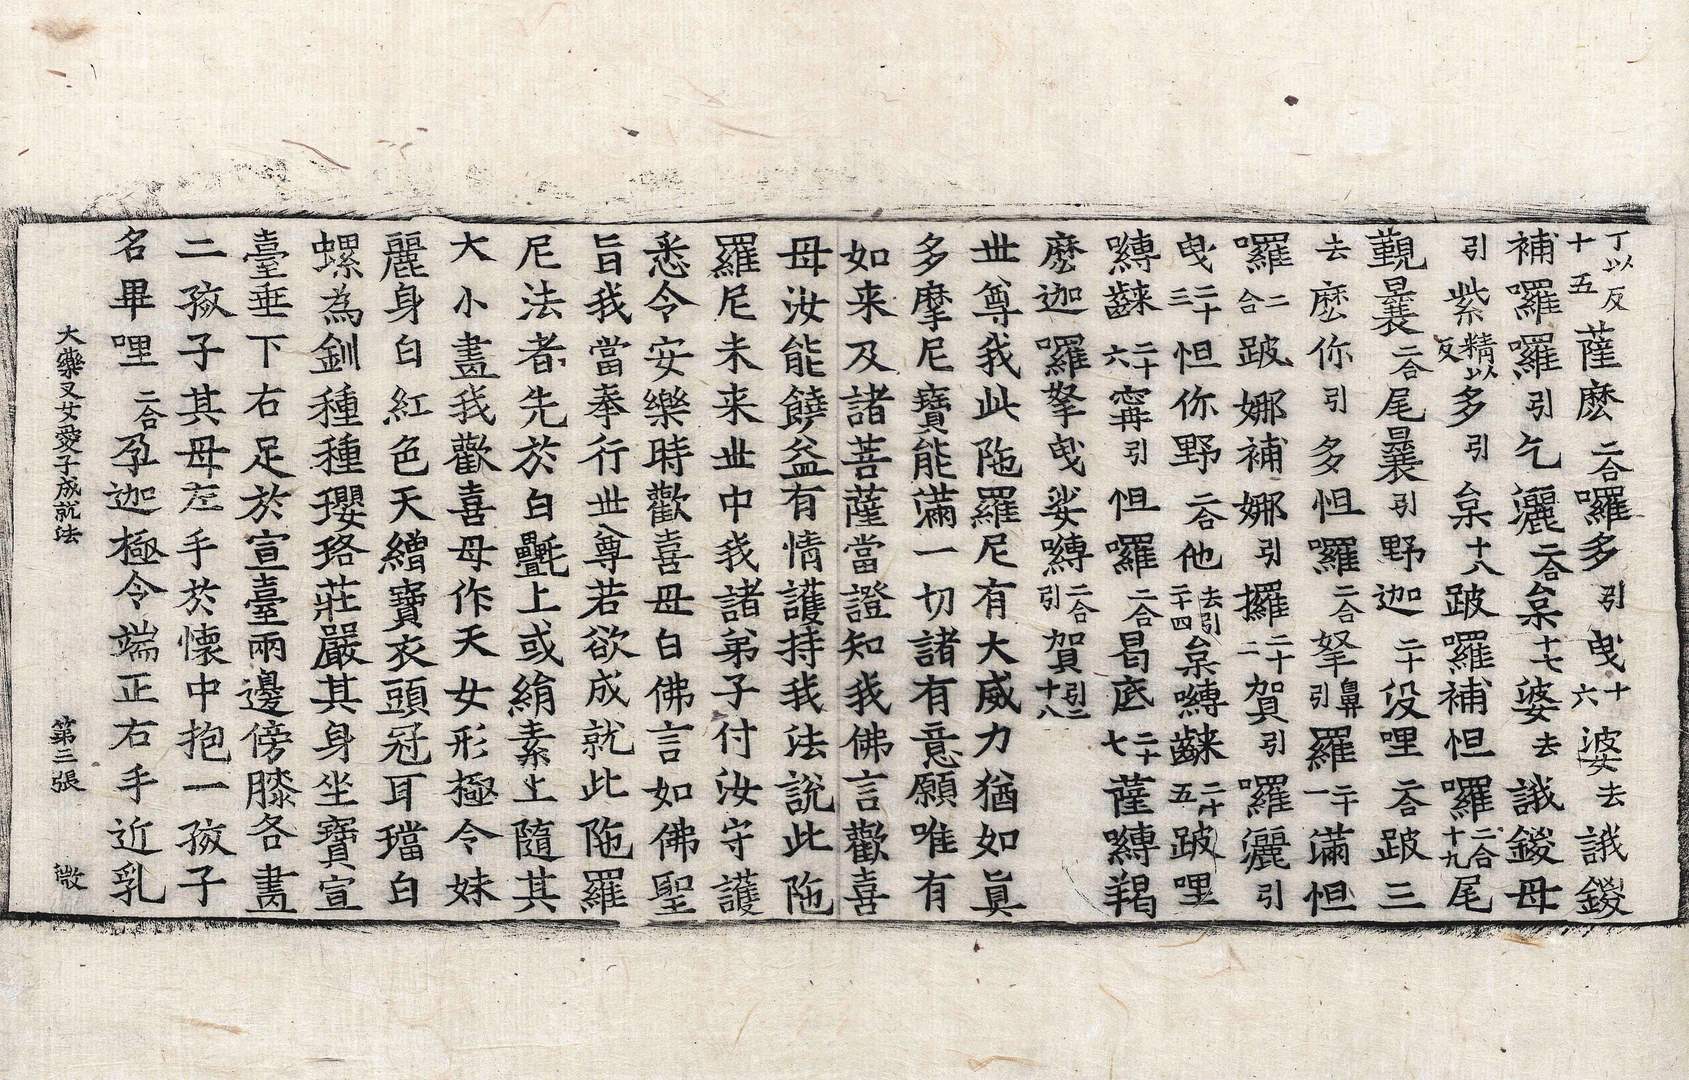 丁以反十五薩麽二合囉多引曳十六婆去誐鍐
補囉囉引乞灑二合枲十七婆去誐鍐母
引紫精以反多引枲十八跛囉補怛囉二合十九尾
覲曩二合尾曩引野迦二十沒哩二合跛三
去麽你引多怛囉二合拏鼻引羅二十一滿怛
囉二合跛娜補娜引攞二十二賀引囉灑引
曳二十三怛你野二合他去引二十四枲嚩齼二十五跛哩
嚩齼二十六寗引怛囉二合曷底二十七薩嚩羯
麽迦囉拏曳娑嚩二合引賀引二十八
世尊我此陁羅尼有大威力猶如真
多摩尼寶能滿一切諸有意願唯有
如来及諸菩薩當證知我佛言歡喜
母汝能饒益有情護持我法說此陁
羅尼未来世中我諸弟子付汝守護
悉令安樂時歡喜母白佛言如佛聖
旨我當奉行世尊若欲成就此陁羅
尼法者先於白㲲上或絹素上隨其
大小畫我歡喜母作天女形極令姝
麗身白紅色天繒寶衣頭冠耳璫白
螺為釧種種瓔珞莊嚴其身坐寶宣
臺垂下右足於宣臺兩邊傍膝各畫
二孩子其母左手於懷中抱一孩子
名畢哩二合孕迦極令端正右手近乳
大藥叉女愛子成就法　第三張